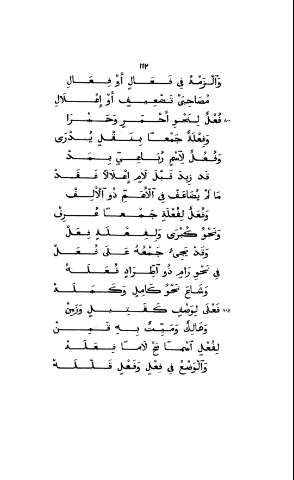 ١١٢
وَٱلْزَمْهُ فِي فَعَالٍ أَوْ فِعَالِ
مُصَاحِبَيْ تَضْعِيفٍ أَوْ إِعْلَالِ
٨٠٠ فُعْلٌ لِنَحْوِ أَحْمَرٍ وَحَمْرَا
وَفِعْلَةٌ جَمْعًا بِنَقْلٍ يُدْرَى
وَفُعُلٌ لِٱسْمٍ رُبَاعِيٍّ بِمَدّ
قَدْ زِيدَ قَبْلَ لَامٍ ٱعْلَالًا فَقَدْ
مَا لَمْ يُضَاعَفْ فِي ٱلْأَعَمِّ ذُو ٱلْأَلِفْ
وَفُعَلٌ لِفُعْلَةٍ جَمْعًا عُرِفْ
وَنَحْوِ كُبْرَى وَلِفِعْلَةٍ فِعَلْ
وَقَدْ يَجِيءُ جَمْعُهُ عَلَى فُعَلْ
فِي نَحْوِ رَامٍ ذُو ٱطِّرَادٍ فُعَلَهْ
وَشَاعَ نَحْوُ كَامِلٍ وَكَمَلَهْ
٨٠٥ فَعْلَى لِوَصْفٍ كَقَتِيلٍ وَزَمِنْ
وَهَالِكٍ وَمَيِّتٌ بِهِ قَمِنْ
لِفُعْلٍ ٱسْمًا صَحَّ لَامًا فِعَلَهْ
وَٱلْوَضْعُ فِي فِعْلٍ وَفَعْلٍ قَلَّلَهْ